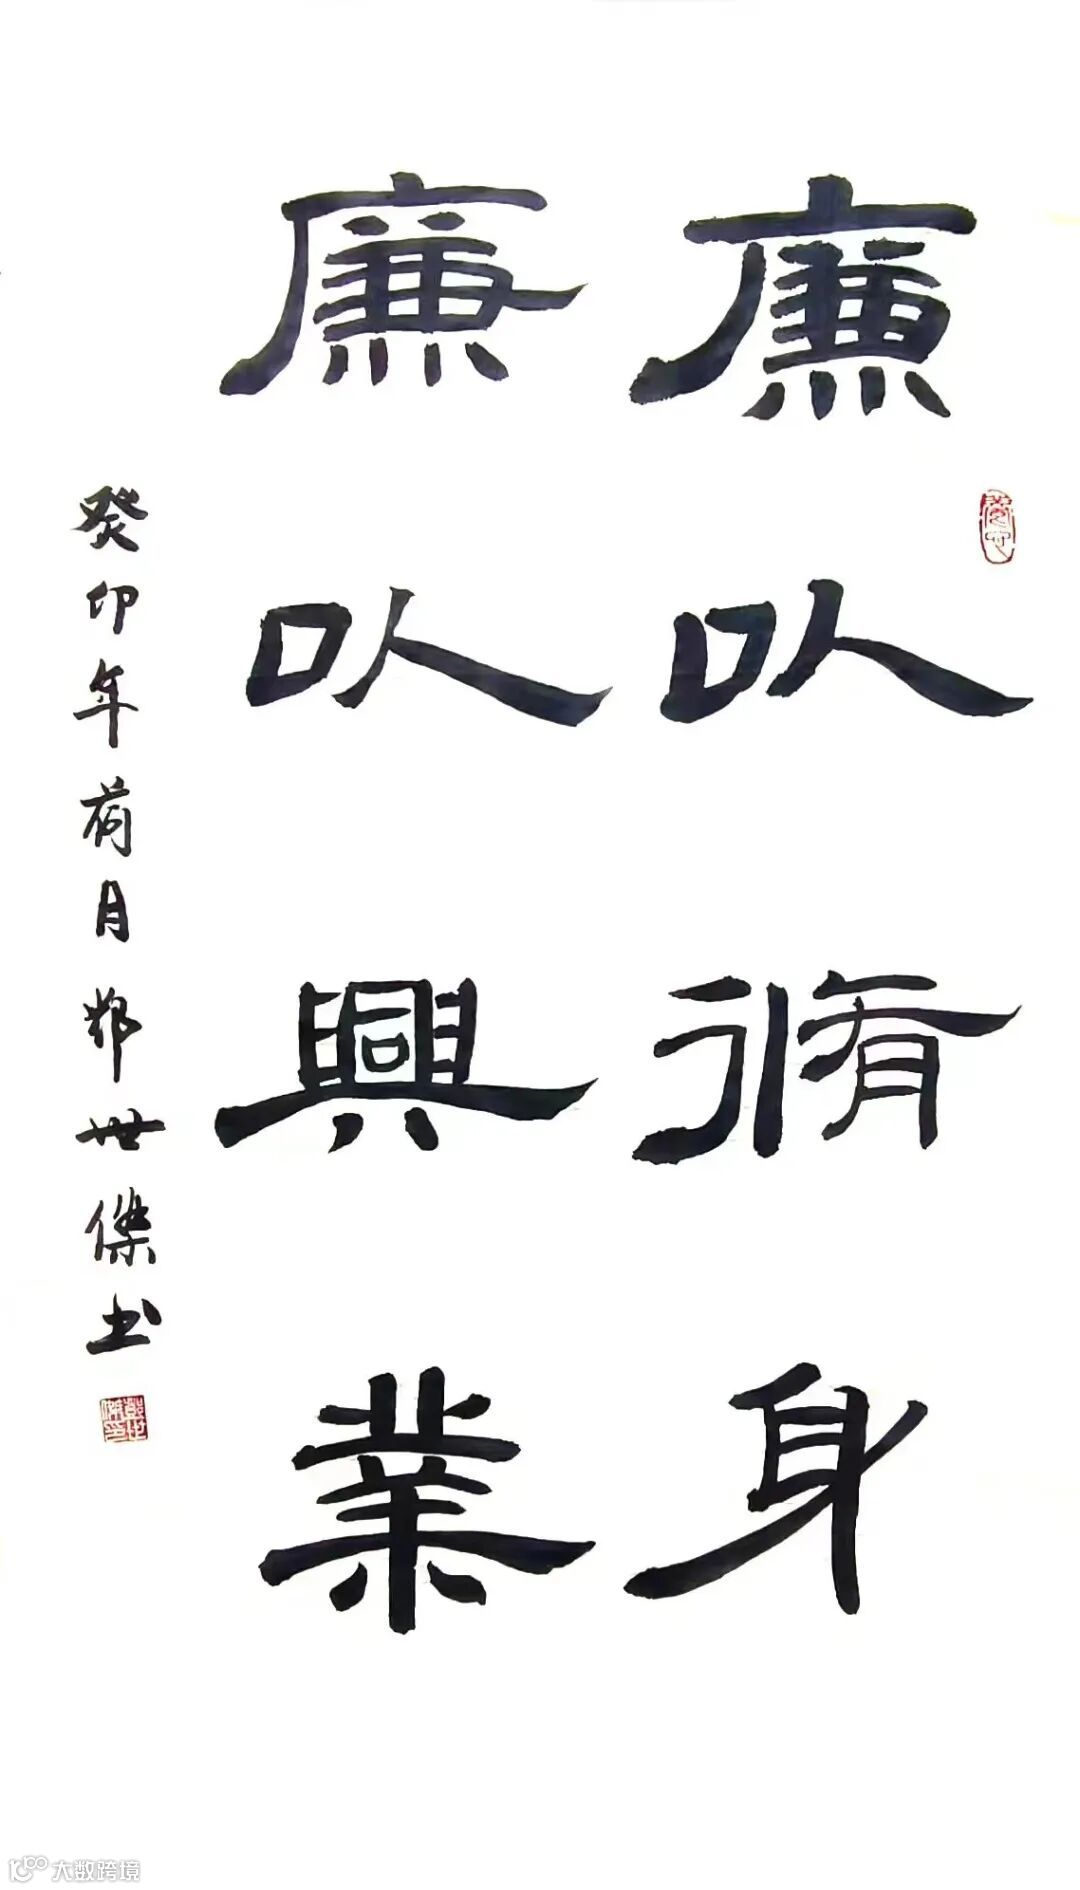 廉以脩身
廉以興業
癸卯年荷月郑世傑書
鄭世傑印
大数跨境